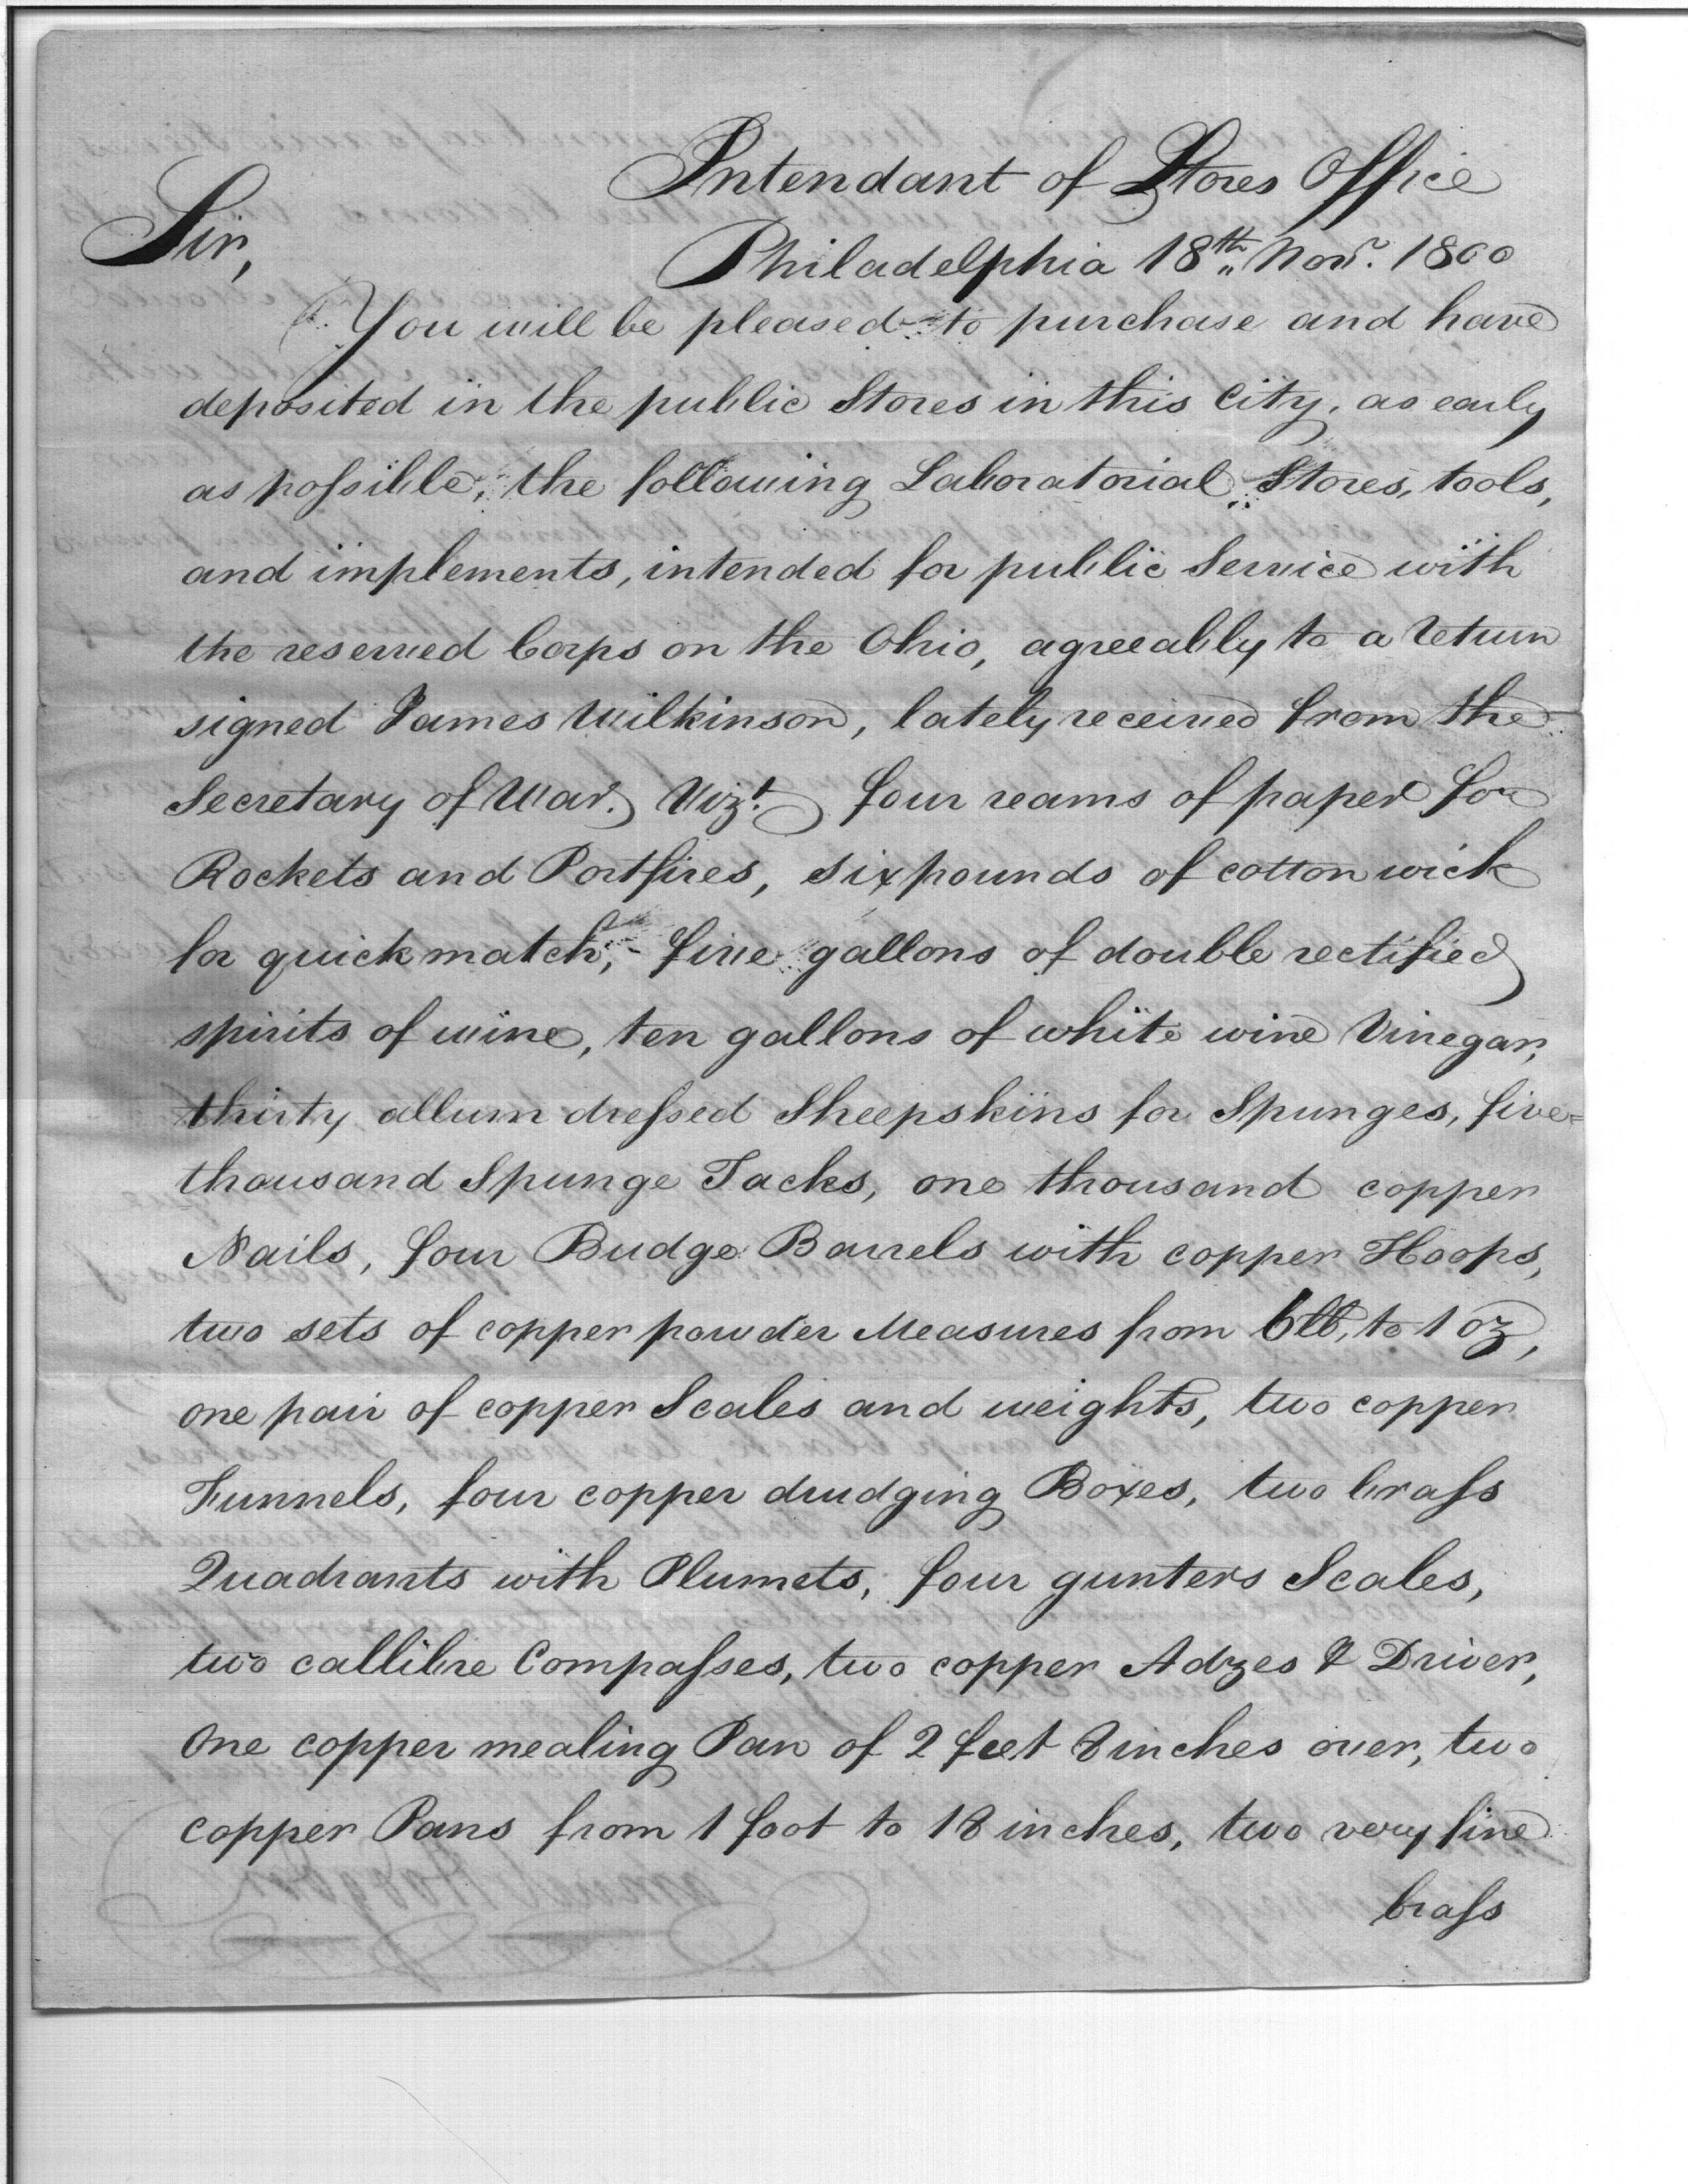 Intendant of Stores Office
Sir,
Philadelphia 18th Novr. 1800
You will be pleased to purchase and have
deposited in the public Stores in this City, as early
as possible, the following Laboratorial Stores, tools,
and implements, intended for public Service with
the reserved Corps on the Ohio, agreeably to a return
signed James Wilkinson, lately received from the
Secretary of War. Vizt. four reams of paper for
Rockets and Portfires, six pounds of cotton wick
for quick match, five gallons of double rectified
spirits of wine, ten gallons of white wine Vinegar,
thirty allum dressed Sheepskins for Spunges, five=
thousand Spunge Tacks, one thousand copper
Nails, four Budge Barrels with copper Hoops,
two sets of copper powder Measures from 6lb, to 1 oz,
one pair of copper Scales and weights, two copper
Funnels, four copper drudging Boxes, two brass
Quadrants with Plumets, four gunters Scales,
two callibre Compasses, two copper Adzes & Driver,
One copper mealing Pan of 2 feet 8 inches over, two
copper Pans from 1 foot to 18 inches, two very fine
brass